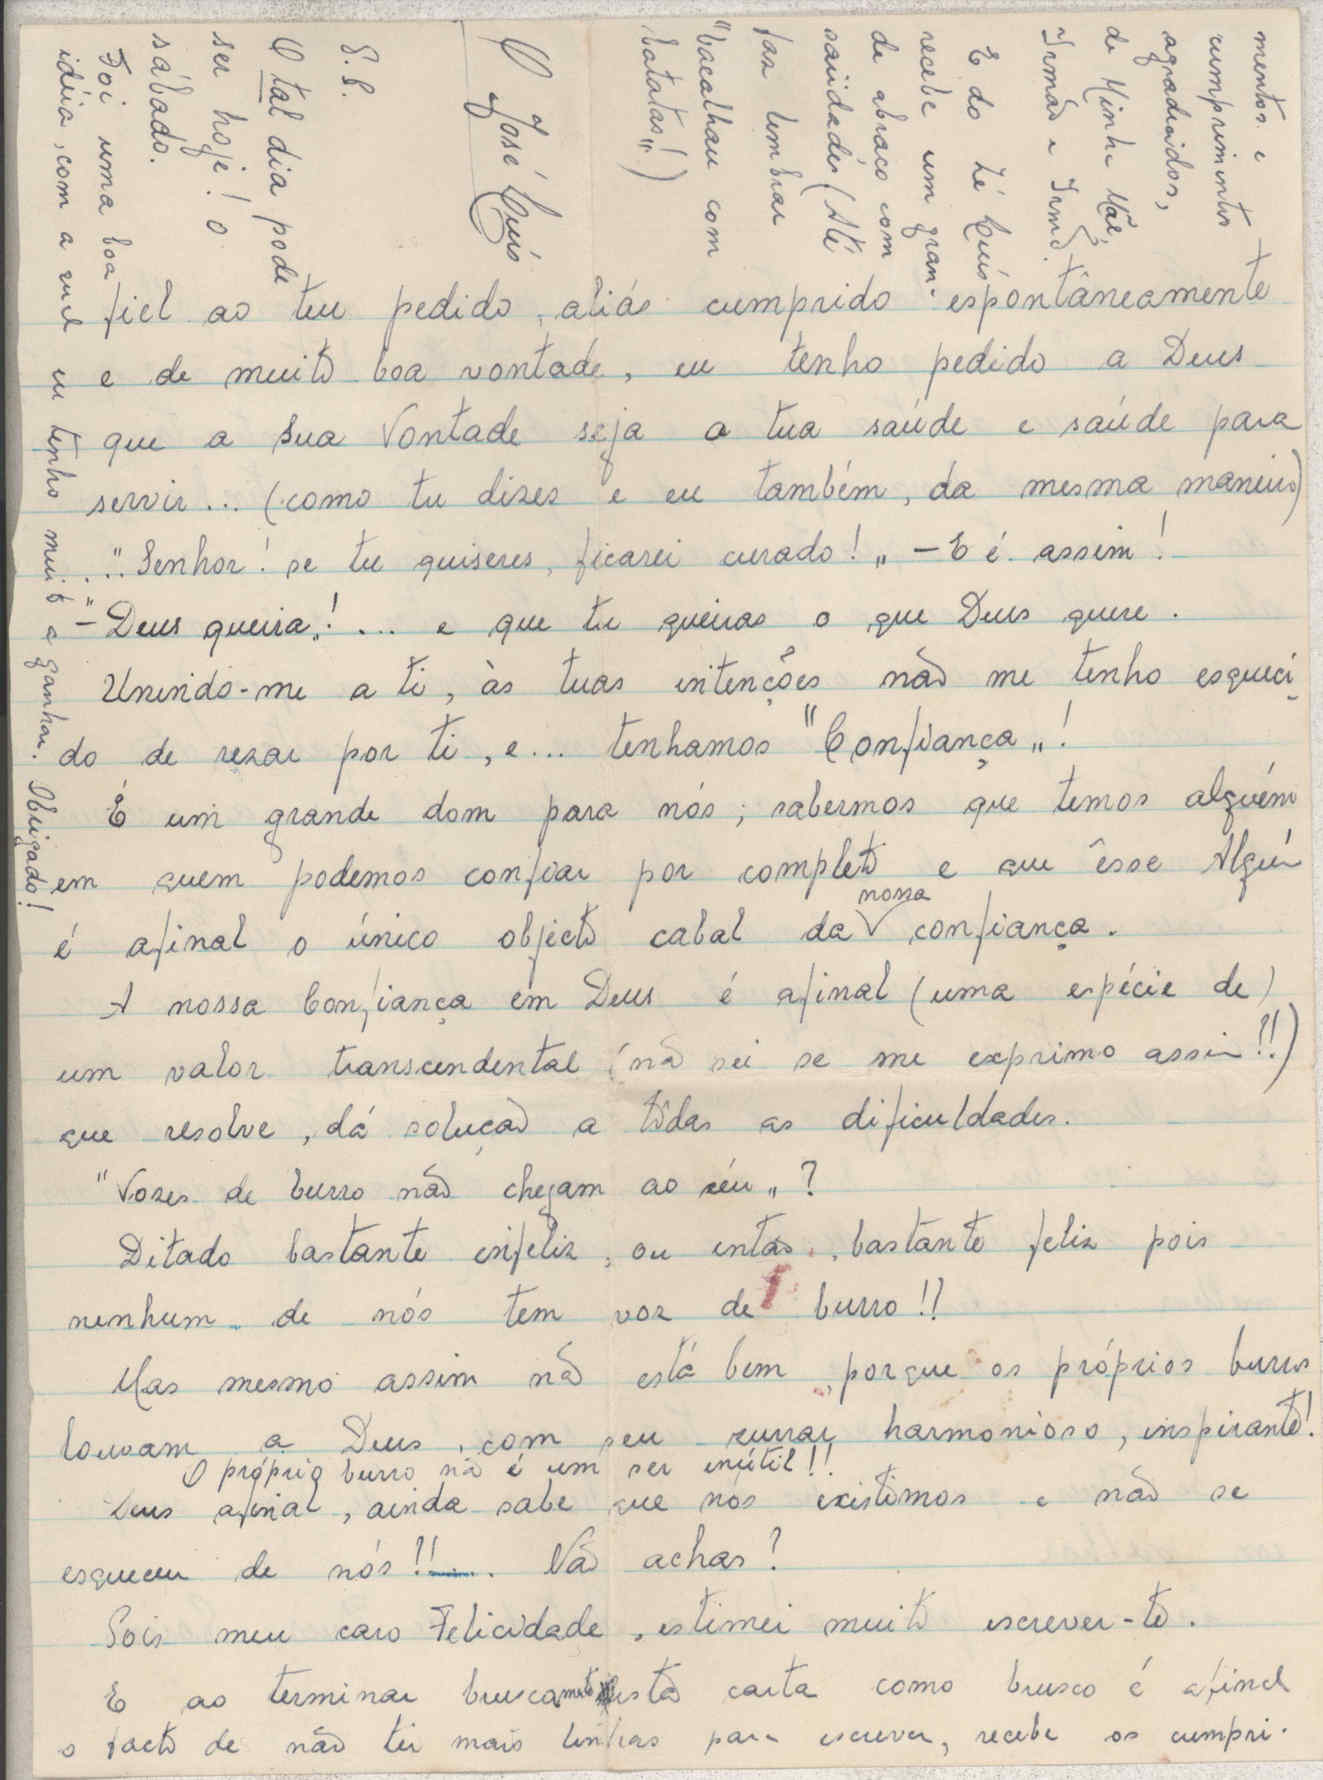 fiel ao teu pedido, aliás cumprido espontâneamente
e de muito boa vontade, eu tenho pedido a Deus
que a Sua Vontade seja a tua saúde e saúde para
servir... (como tu dizes e eu também, da mesma maneira)
..."Senhor! se tu quiseres, ficarei curado!„ – E é assim!
– "Deus queira„!... e que tu queiras o que Deus quere.
Unindo-me a ti, às tuas intenções não me tenho esqueci-
do de rezar por ti, e... tenhamos "Confiança„!
É um grande dom para nós; sabermos que temos alguém
em quem podemos confiar por completo e que êsse Alguém
é afinal o único objecto cabal da nossa confiança.
A nossa Confiança em Deus é afinal (uma espécie de)
um valor transcendental (não sei se me exprimo assim!!)
que resolve, dá solução a tôdas as dificuldades.
"Vozes de burro não chegam ao céu„?
Ditado bastante infeliz, ou então, bastante feliz pois
nenhum de nós tem voz de burro!!
Mas mesmo assim não está bem, porque os próprios burros
louvam a Deus, com seu zurrar harmonioso, inspirante!
O próprio burro não é um ser inútil!!
Deus afinal, ainda sabe que nós existimos e não se
esqueceu de nós!!.... Não achas?
Pois meu caro Felicidade, estimei muito escrever-te.
E ao terminar bruscamente esta carta como brusco é afinal
o facto de não ter mais linhas para escrever, recebe os cumpri-
mentos e
cumprimentos
agradecidos,
de Minha Mãe,
Irmão e Irmã.
E do Zé Luís
recebe um gran-
de abraço com
saüdades (Até
faz lembrar
"bacalhau com
batatas!„)
José Luís
P.S.
O tal dia pode
ser hoje! o
sábado.
Foi uma boa
idéia, com a qual eu tenho muito a ganhar. Obrigado!